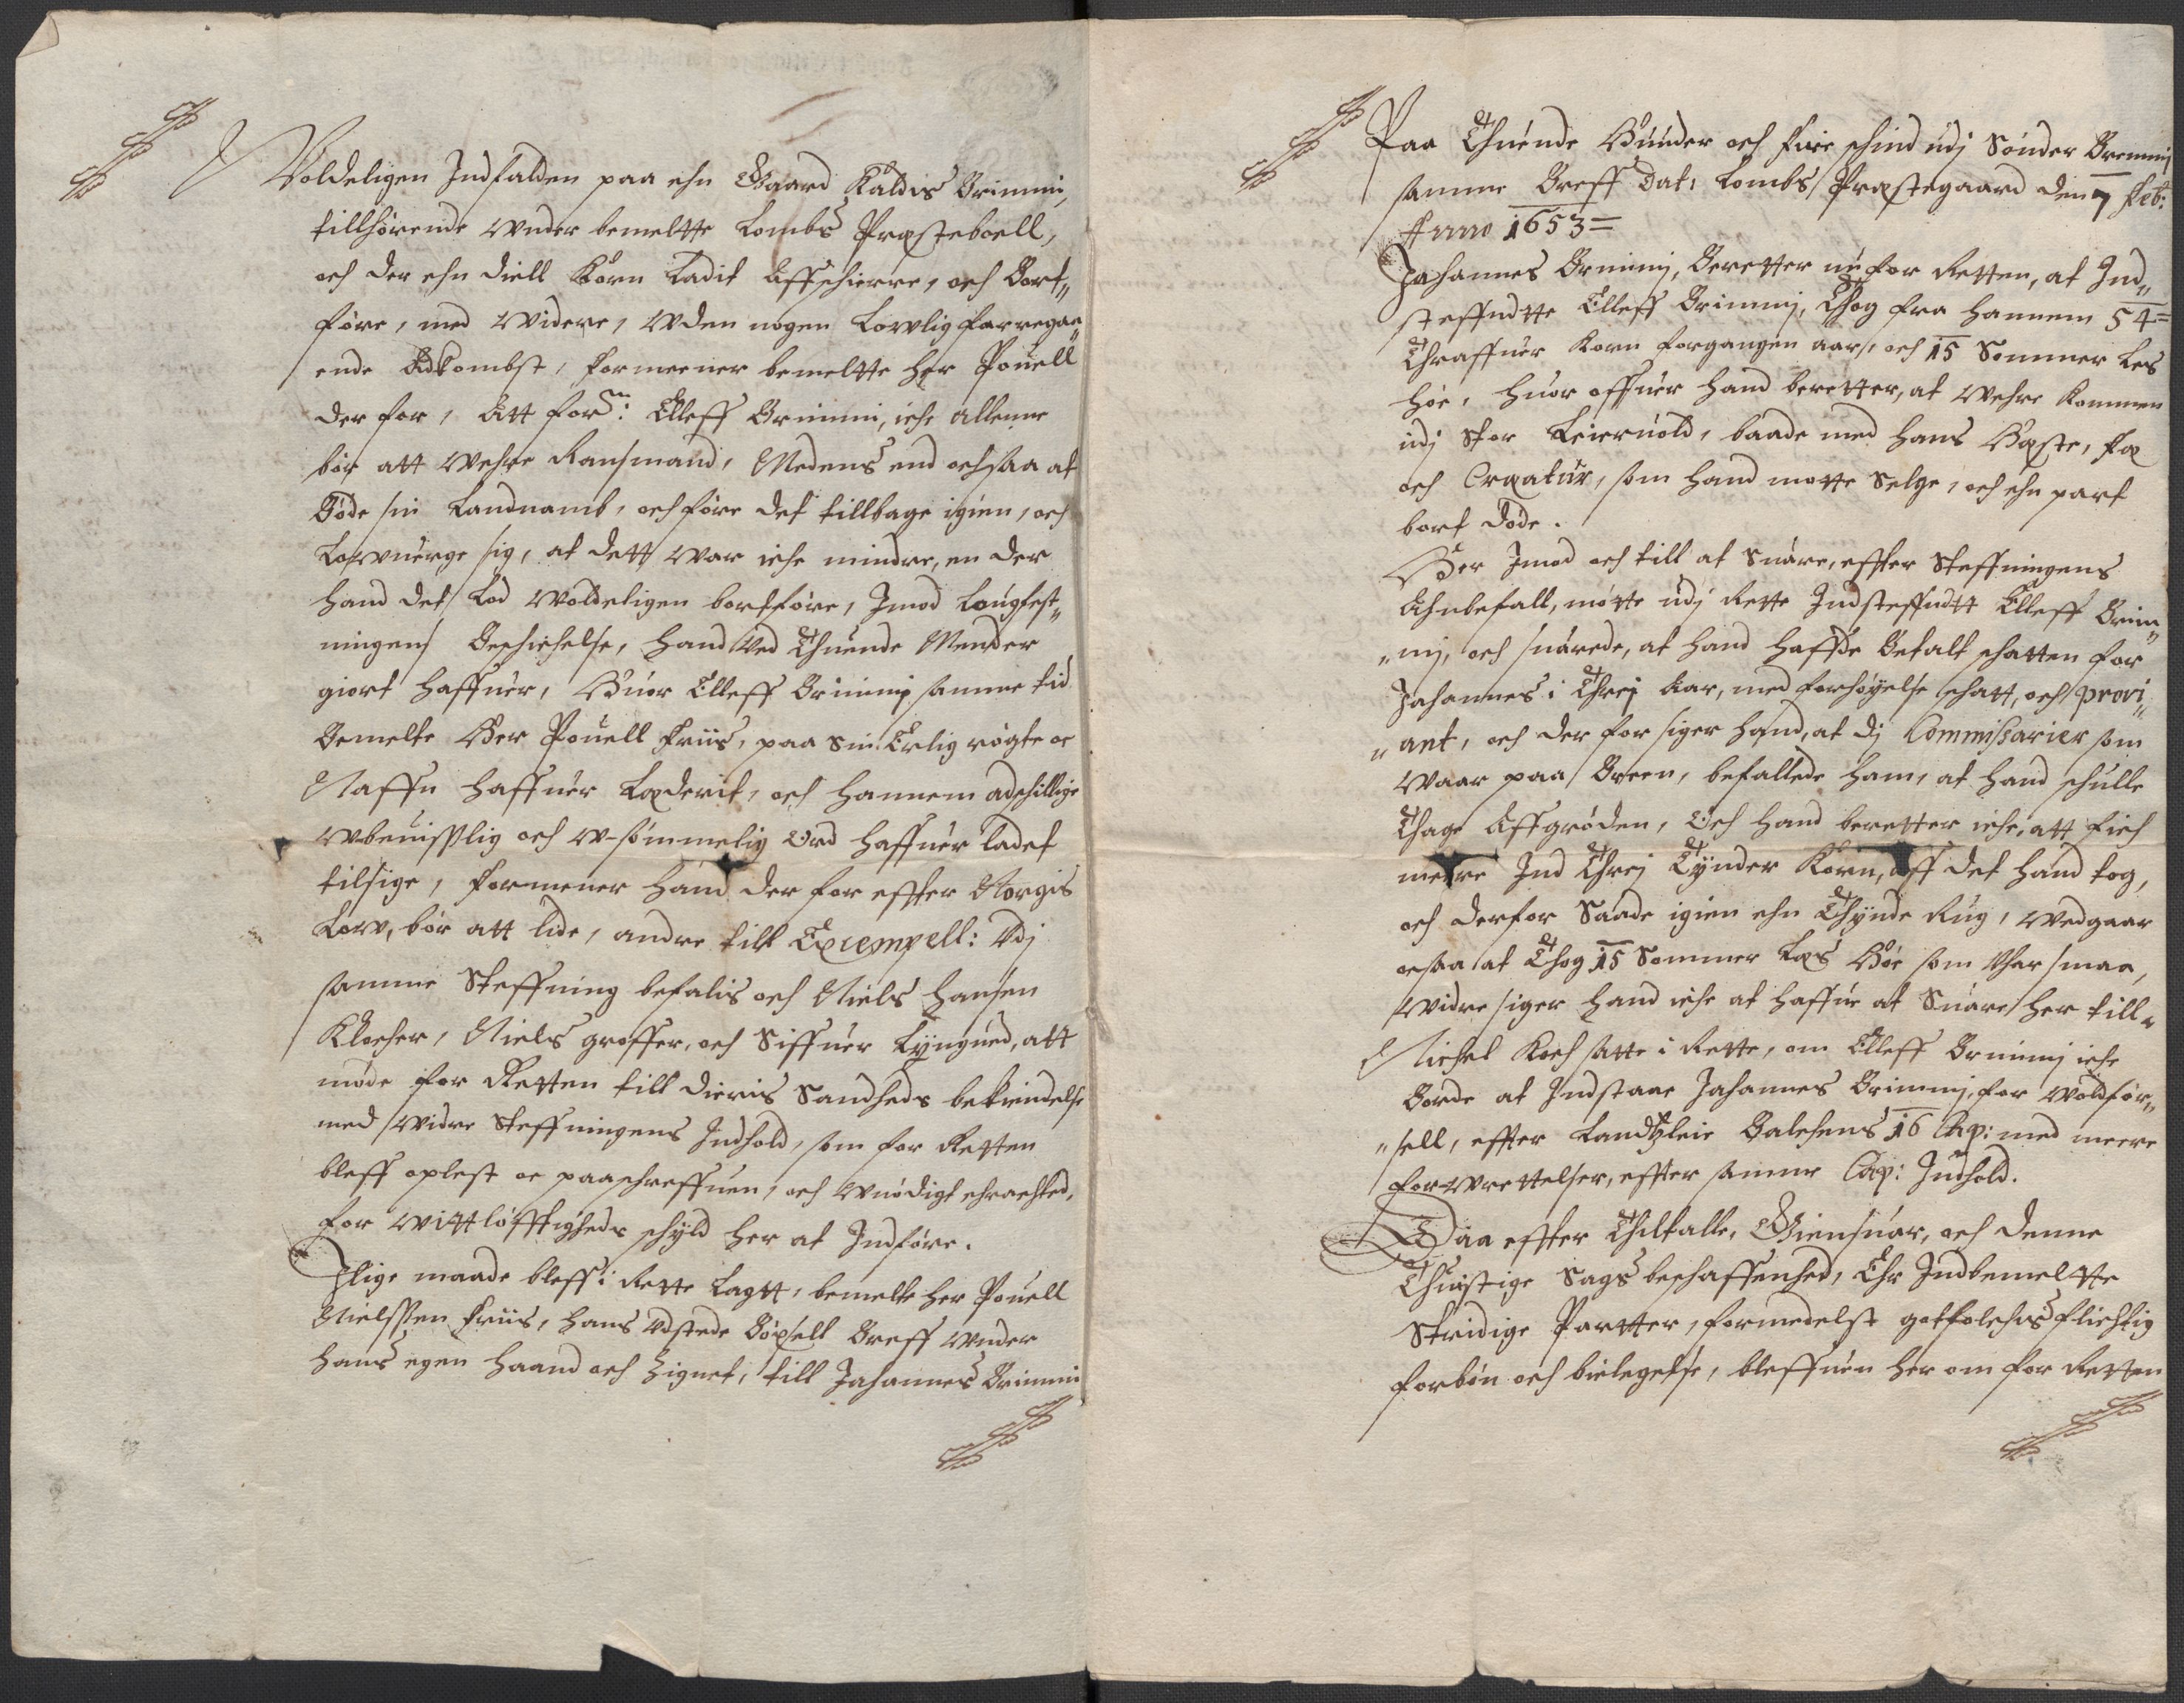 Voldeligen Indfalden paa ehn Gaard Kaldis Brimmi,
tillhörende vnder bemeltte Lombs Præsteboell,
och der ehn diell Korn Ladit Affschierre, och Bort„
före, med Videre, Vden nogen Lowlig forregaa„
ende Adkombst, formeener bemeltte her Pouell
der for, Att forn: Elleff Brimmi, iche allenne
bör att Wehre Ransmand, Medens end ochsaa at
Böde sin Landnamb, och före det tillbage igien, och
Lowuerge sig, at dett War iche mindre, en der
hand det Lod Woldeligen bortföre, Imod Lougfest„
ningens Beschichelse, hand Ved Thuende Mender
giort haffuer, Huor Elleff Brimmj samme tid
Bemelte Her Pouell Friis, paa sin Erlig rögte oc
Naffn haffuer Læderit, och hannem adschillige
Vbeuisslig och V-sömmelig Ord haffuer ladet
tilsige, formener hand der for effter Norgis
Low, bör att lide, andre till Exempell: Vdj
samme Steffning befalis och Niels Hansen
Klocher, Niels groffer, och Siffuer Lyngued, att
möde for Retten till dieris Sandheds bekiendelse
med Widre Steffningens Indhold, som for Retten
bleff oplest oc paaschreffuen, och Vnödigt ehrachted,
for Wittlöfftigheds schyld her at Indföre.
Ilige maade bleff i Rette Lagtt, bemelte her Pouell
Nielssen Friis, hans Vdstede Böxsell Breff Vnder
hans egen haand och Zignet, till Johannes Brimmi
Paa Thuende Hunder och fire schind udj Sönder Bremmj
samme Breff Dat: Lombs Præstegaard den 7 Feb:
Anno 1653=
Johannes Brimmj, Beretter nu for Retten, at Ind„
steffndte Elleff Brimmj, Thog fra hannem 54=
Thraffuer Korn forgangen aars, och 15 Sommer Les
höe, huor offuer hand beretter, at Wehre kommen
udj stor Leieruold, baade med hans Hæste, Fæ
och Creatur, som hand motte Selge, och ehn part
bort döde.
Her Imod och till at Suare, effter Steffningens
Ahnbefall, mötte udj Rette Indsteffndtt Elleff Brim„
„mj, och suarede, at hand haffde Betalt schatten for
Johannes i Threj Aar, med forhöyelse schatt, och provi„
„ant, och der for siger hand, at dj Commissarier som
Waar paa Breen, befallede ham, at hand schulle
Thage Affgröden, Och hand beretter iche, att fich
meere Ind Threj Tynder Korn, aff det hand tog,
och derfor Saade igien ehn Thynde Rug, Vedgaar
ocsaa at Thog 15 Sommer Læs Höe som Vhar smaa,
Widre siger hand iche at haffue at Suare her till.
Michel Koch satte i Rette, om Elleff Brimmj iche
Borde at Indstaae Johannes Brimmj, for Woldför„
„sell, effter Landtzleie Balchens 16 Cap: med meere
for-Wrettelser, effter samme Cap: Indhold.
Daa effter Thiltalle, Giensuar, och denne
Thuistige Sags beschaffenhed, Ehr Indbemeltte
Stridige Partter, formedelst gotfolches flichtig
forbön och bielegelse, bleffuen her om for Retten